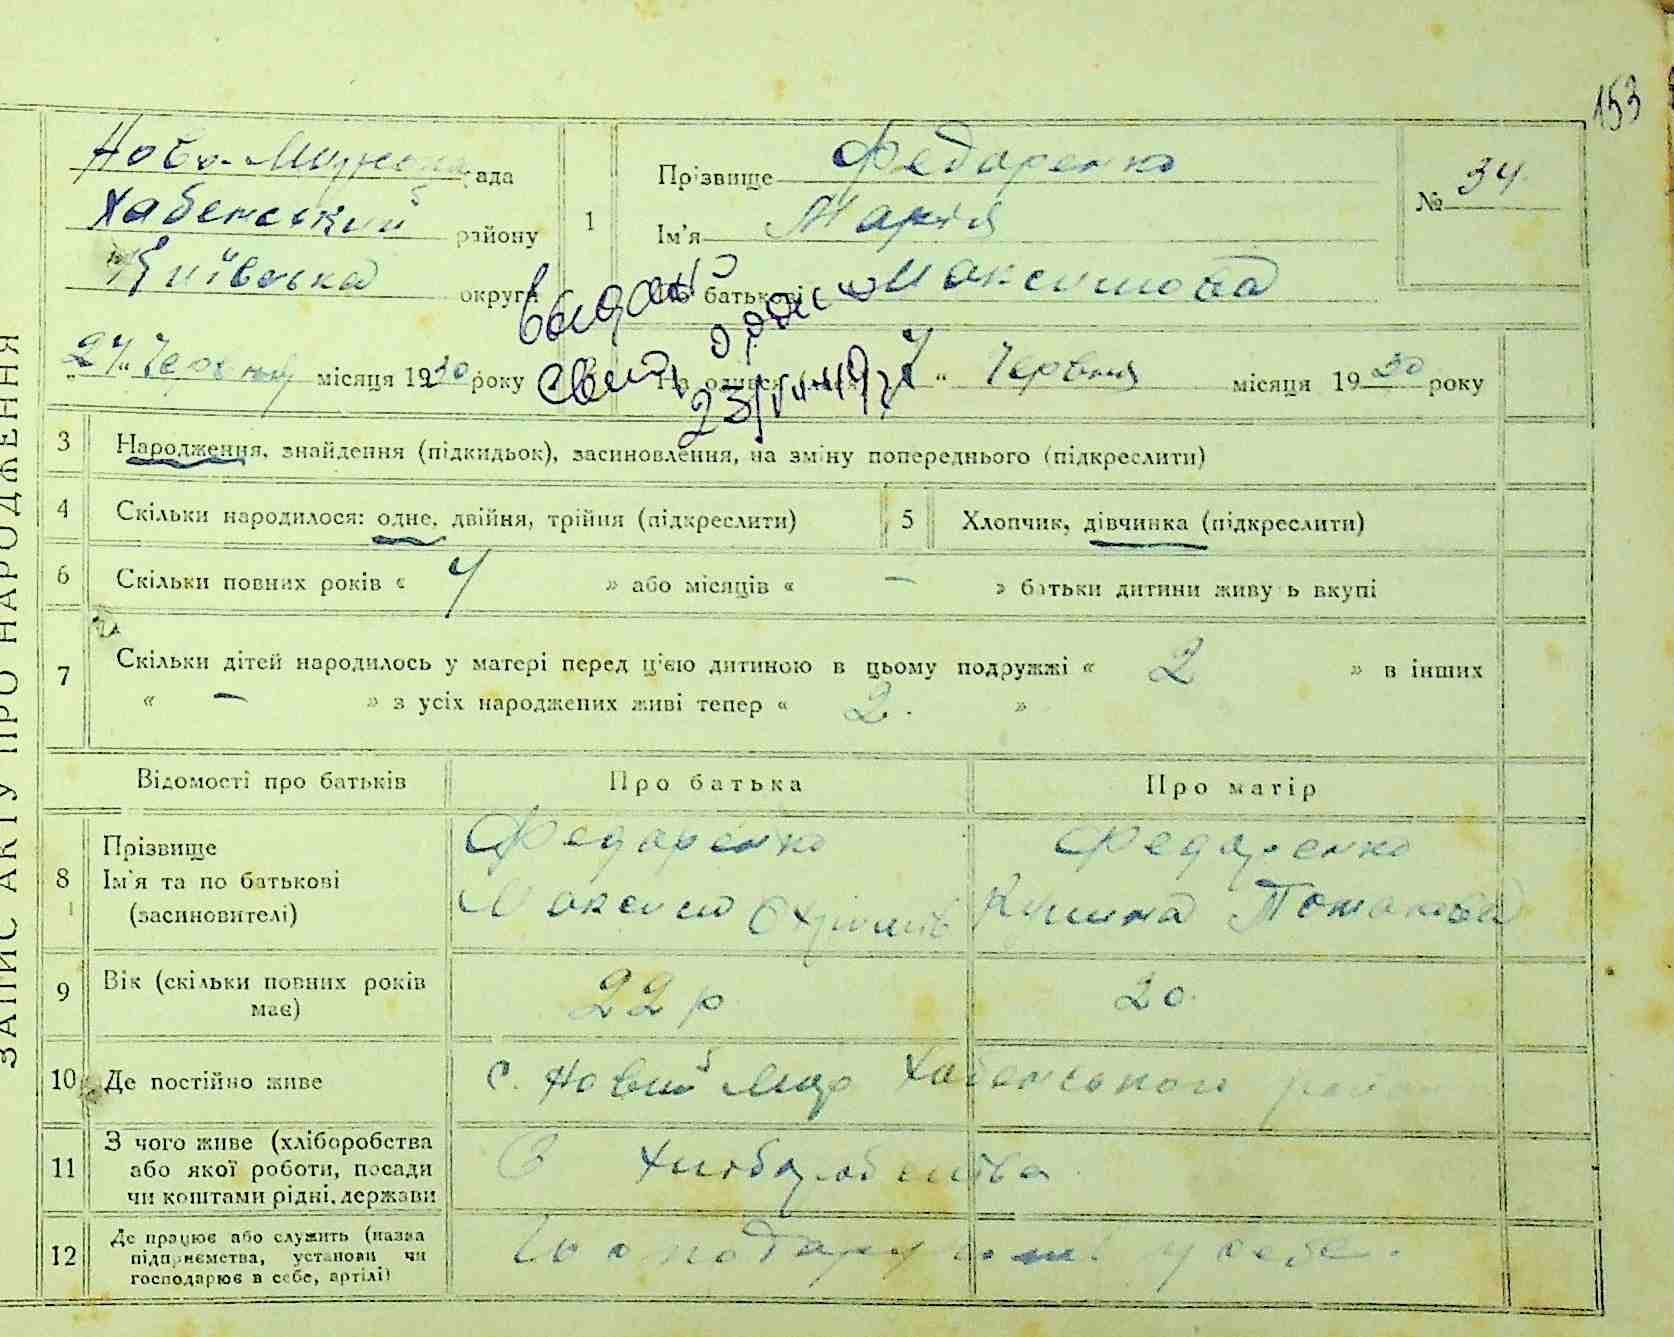 153
ЗАПИС АКТУ ПРО НАРОДЖЕННЯ
Ново-Мирська рада
Хабенський району
Київська округи
1
Прізвище Федаренко
Ім'я Марія
По батькові Максимова
№ 34
видані
свит.
23/VII-49 г
„27“ Червня місяця 1930 року
7 “ Червня місяця 1930 року
3 Народження, знайдення (підкидьок), засиновлення, на зміну попереднього (підкреслити)
4 Скільки народилося: одне, двійня, трійня (підкреслити) 5 Хлопчик, дівчинка (підкреслити)
6 Скільки повних років « 4 » або місяців « – » батьки дитини живуть вкупі
7 Скільки дітей народилось у матері перед цією дитиною в цьому подружжі « 2 » в інших
« – » з усіх народжених живі тепер « 2. »
Відомості про батьків Про батька Про матір
8 Прізвище
Ім'я та по батькові
(засиновителі)
Федаренко
Максим Охрімів
Федаренко
Потапова
9 Вік (скільки повних років
має)
22 р
20.
10 Де постійно живе с. Новий Мир Хабенського район
11 З чого живе (хліборобства
або якої роботи, посади
чи коштами рідні, держави
З хліборобства
12 Де працює або служить (назва
підприємства, установи чи
господарює в себе, артілі)
у себе.